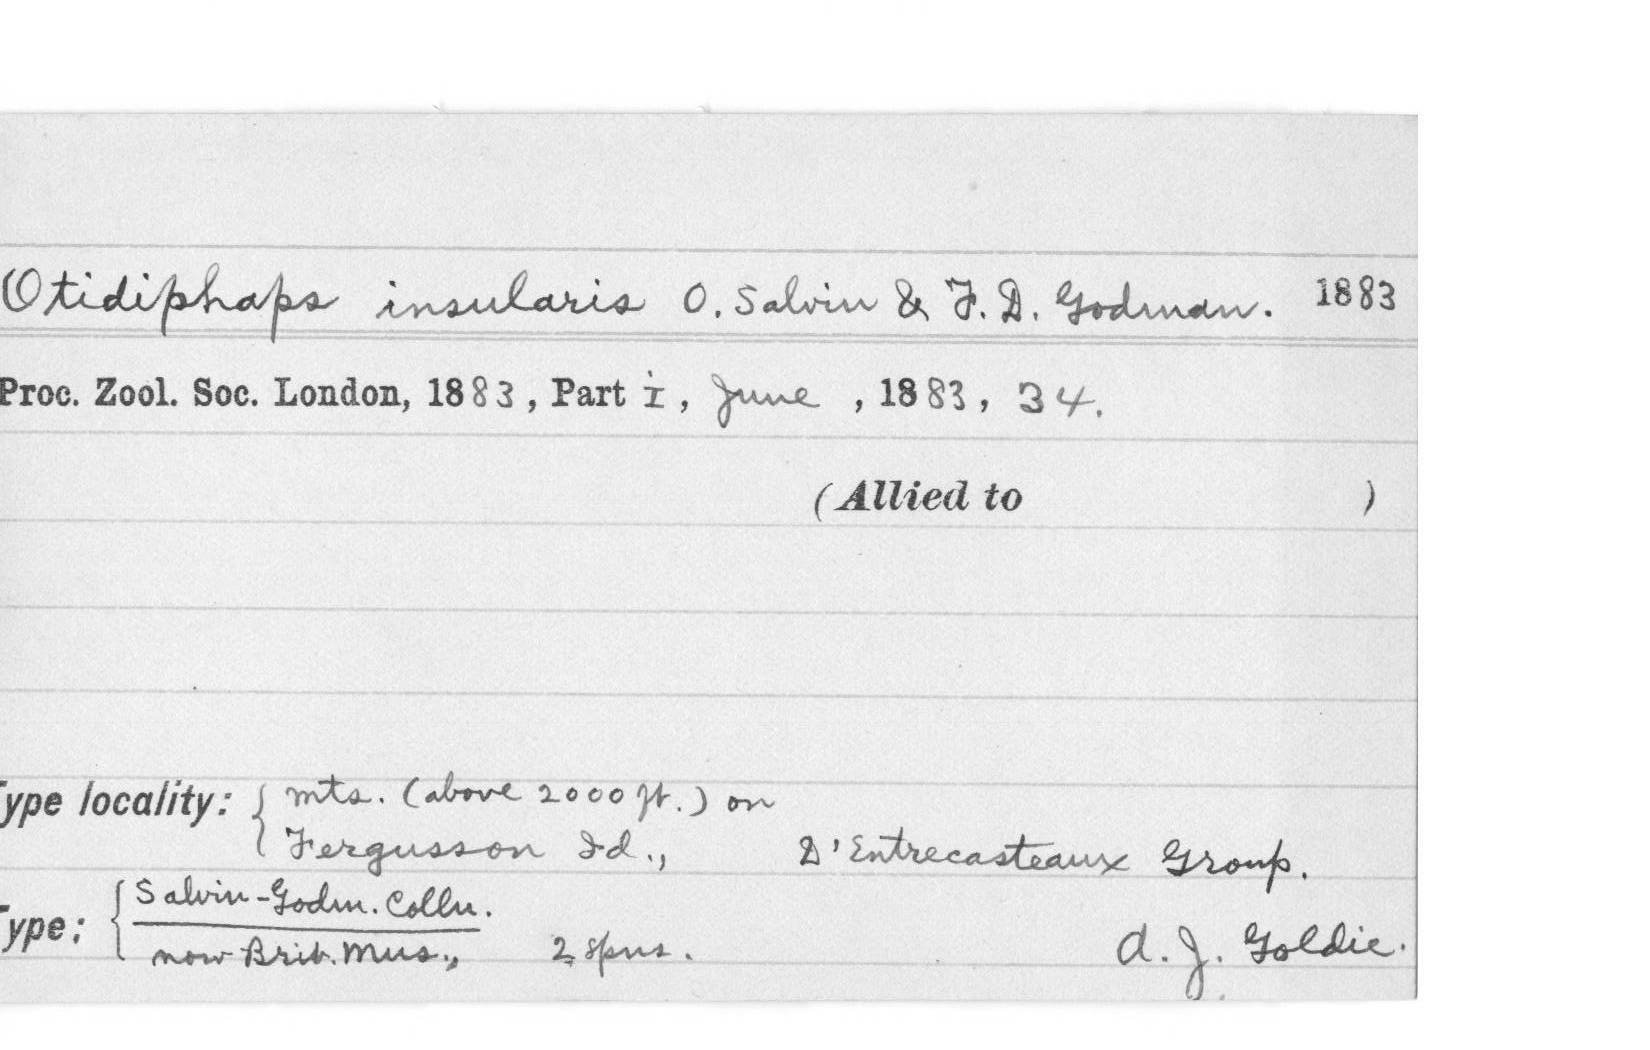 Otidiphaps insularis O. Salvin & F. D. Godman. 1883
Proc. Zool. Soc. London, 1883, Part i, June , 1883, 34.
(Allied to )
Type locality: { mts. (above 2000 ft.) on
Fergusson Id., D'Entrecasteaux Group.
Type: { Salvin-Godm. Colln.
now Brit. Mus., 2 spns. A. J. Goldie.